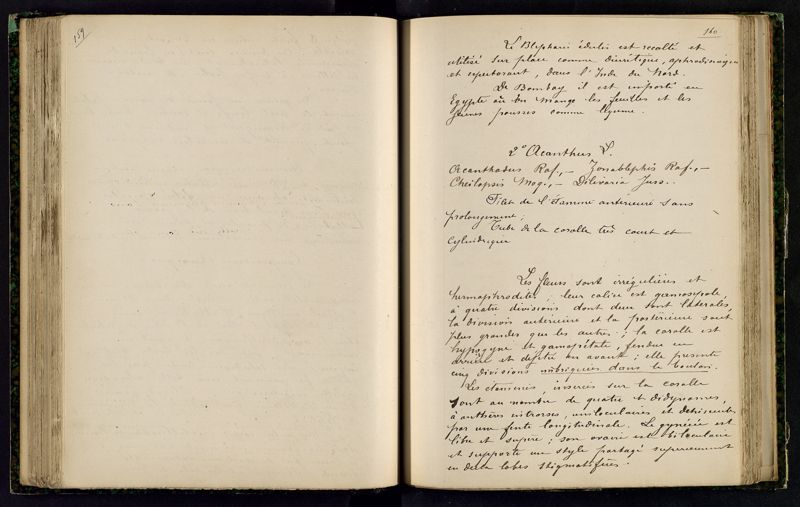 159
160
Le Blepharis édulis est recolté et
utilisé sur place comme diurétique, aphrodisiaque
et , dans l'Inde du Nord.
De Bombay il est importé en
Egypte où on mange les feuilles et les
jeunes pousses comme légume.
2° Acanthus L.
Acanthodus Raf., - Zonablephis Raf., -
Cheilopsis Moq., - Dilivaria Juss..
Filet de l'Etamine antérieure sans
prolongement;
Tube de la corolle très court et
Cylindrique
Les fleurs sont irrégulières et
hermaphrodites; leur calice est gamosépale
à quatre divisions dont deux sont latérales,
la division antérieure et la postérieure sont
plus grandes que les autres; la corolle est
hypogyne et gamopétale, fendue en
arrière et déjetée en avant; elle présente
cinq divisions imbriquées dans le bouton.
Les étamines, insérées sur la corolle
sont au nombre de quatre et didynames,
à anthères introrses, uniloculaires et déhiscentes
par une fente longitudinale. Le gynécée est
libre et supère; son ovaire est biloculaire
et supporte un style partagé supérieurement
en deux lobes stigmatifères.